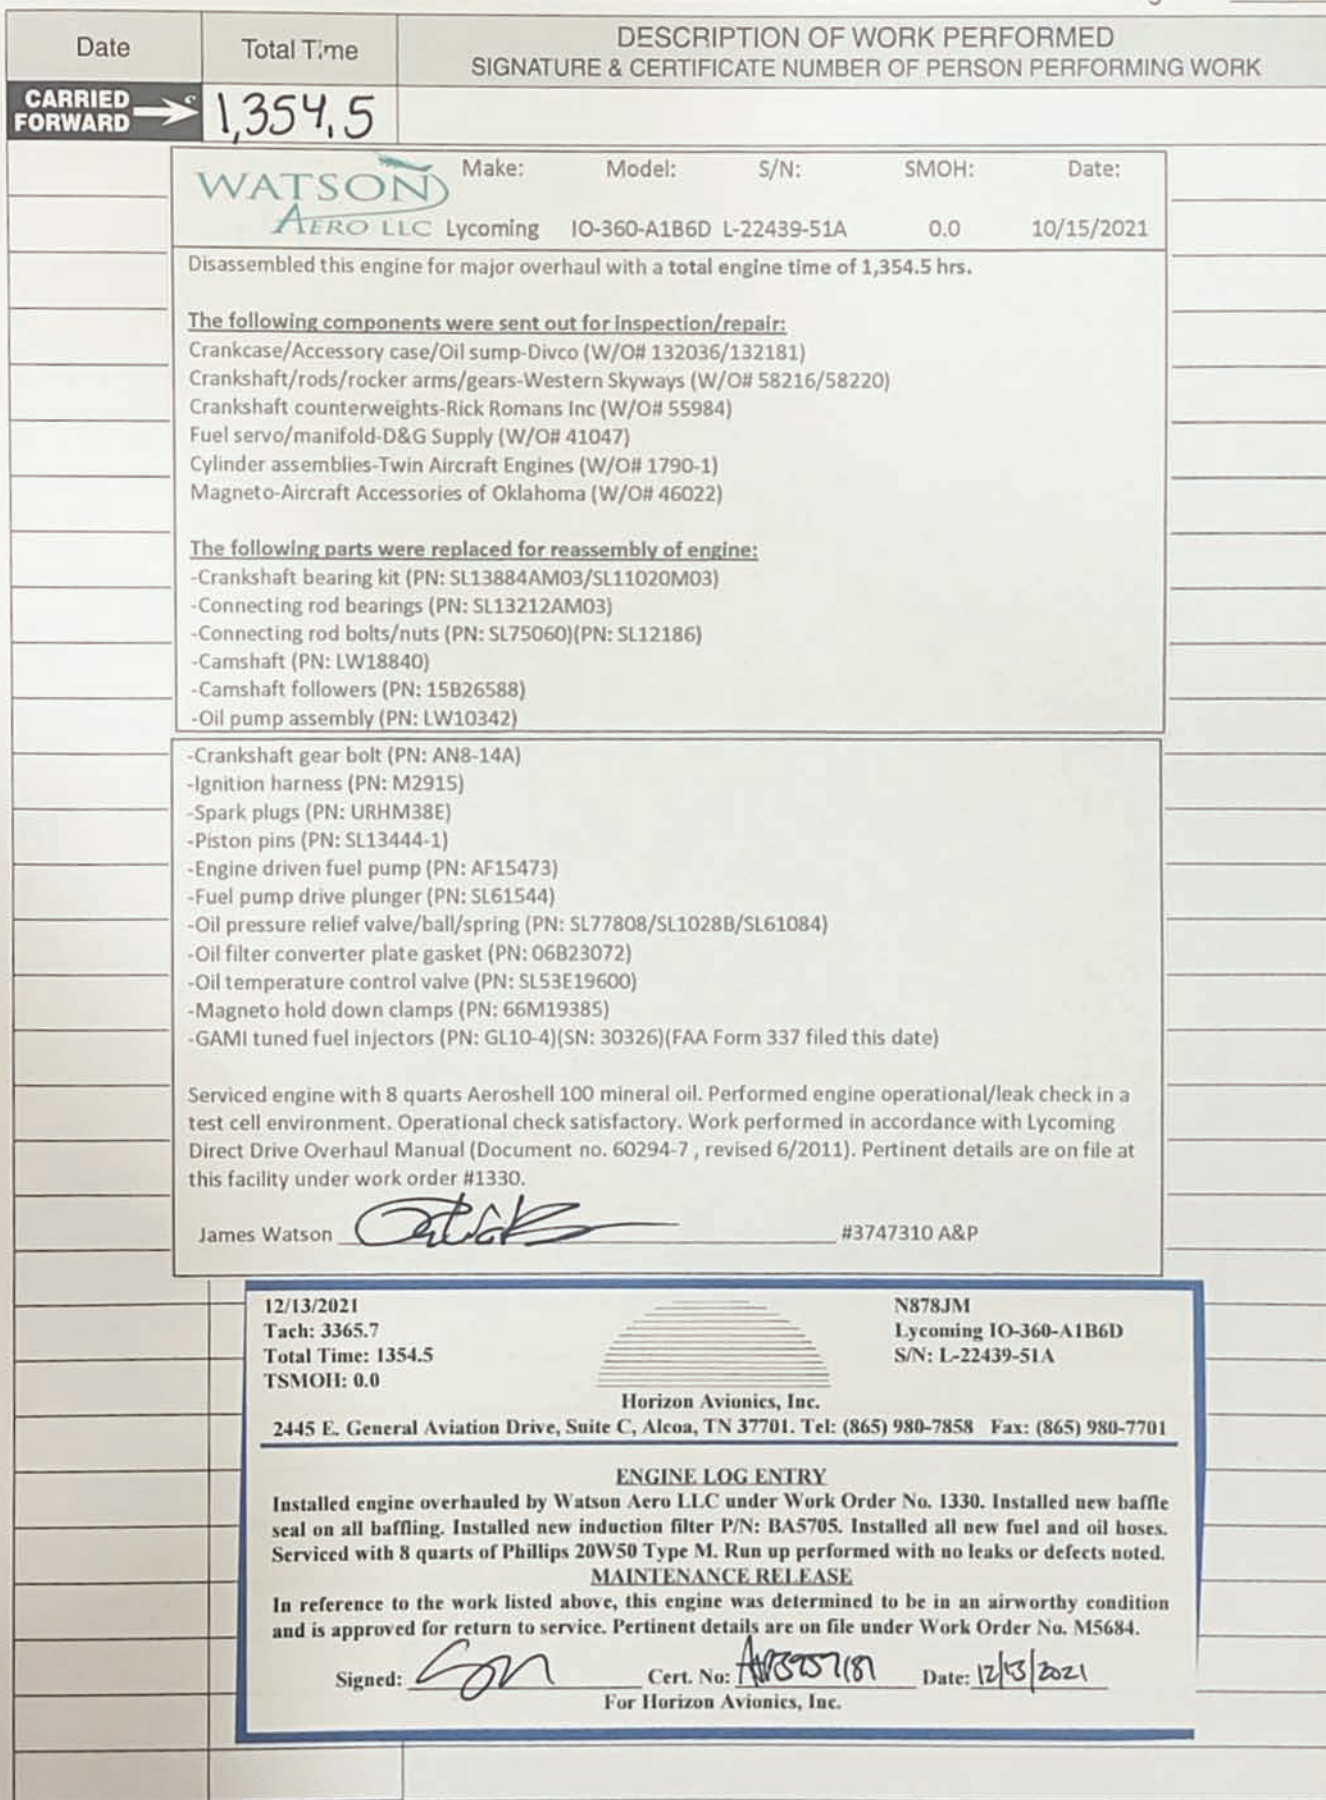 Date Total Time DESCRIPTION OF WORK PERFORMED
SIGNATURE & CERTIFICATE NUMBER OF PERSON PERFORMING WORK
CARRIED FORWARD 1,354.5
WATSON AERO LLC
Make: Model: S/N: SMOH: Date:
Lycoming IO-360-A1B6D L-22439-51A 0.0 10/15/2021
Disassembled this engine for major overhaul with a total engine time of 1,354.5 hrs.
The following components were sent out for inspection/repair:
Crankcase/Accessory case/Oil sump-Divco (W/O# 132036/132181)
Crankshaft/rods/rocker arms/gears-Western Skyways (W/O# 58216/58220)
Crankshaft counterweights-Rick Romans Inc (W/O# 55984)
Fuel servo/manifold-D&G Supply (W/O# 41047)
Cylinder assemblies-Twin Aircraft Engines (W/O# 1790-1)
Magneto-Aircraft Accessories of Oklahoma (W/O# 46022)
The following parts were replaced for reassembly of engine:
-Crankshaft bearing kit (PN: SL13884AM03/SL11020M03)
-Connecting rod bearings (PN: SL13212AM03)
-Connecting rod bolts/nuts (PN: SL75060)(PN: SL12186)
-Camshaft (PN: LW18840)
-Camshaft followers (PN: 15B26588)
-Oil pump assembly (PN: LW10342)
-Crankshaft gear bolt (PN: AN8-14A)
-Ignition harness (PN: M2915)
-Spark plugs (PN: URHM38E)
-Piston pins (PN: SL13444-1)
-Engine driven fuel pump (PN: AF15473)
-Fuel pump drive plunger (PN: SL61544)
-Oil pressure relief valve/ball/spring (PN: SL77808/SL1028B/SL61084)
-Oil filter converter plate gasket (PN: 06B23072)
-Oil temperature control valve (PN: SL53E19600)
-Magneto hold down clamps (PN: 66M19385)
-GAMI tuned fuel injectors (PN: GL10-4)(SN: 30326)(FAA Form 337 filed this date)
Serviced engine with 8 quarts Aeroshell 100 mineral oil. Performed engine operational/leak check in a
test cell environment. Operational check satisfactory. Work performed in accordance with Lycoming
Direct Drive Overhaul Manual (Document no. 60294-7 , revised 6/2011). Pertinent details are on file at
this facility under work order #1330.
James Watson #3747310 A&P
12/13/2021 N878JM
Tach: 3365.7 Lycoming IO-360-A1B6D
Total Time: 1354.5 S/N: L-22439-51A
TSMOH: 0.0
Horizon Avionics, Inc.
2445 E. General Aviation Drive, Suite C, Alcoa, TN 37701. Tel: (865) 980-7858 Fax: (865) 980-7701
ENGINE LOG ENTRY
Installed engine overhauled by Watson Aero LLC under Work Order No. 1330. Installed new baffle
seal on all baffling. Installed new induction filter P/N: BA5705. Installed all new fuel and oil hoses.
Serviced with 8 quarts of Phillips 20W50 Type M. Run up performed with no leaks or defects noted.
MAINTENANCE RELEASE
In reference to the work listed above, this engine was determined to be in an airworthy condition
and is approved for return to service. Pertinent details are on file under Work Order No. M5684.
Signed: Cert. No: Date: 12/13/2021
For Horizon Avionics, Inc.